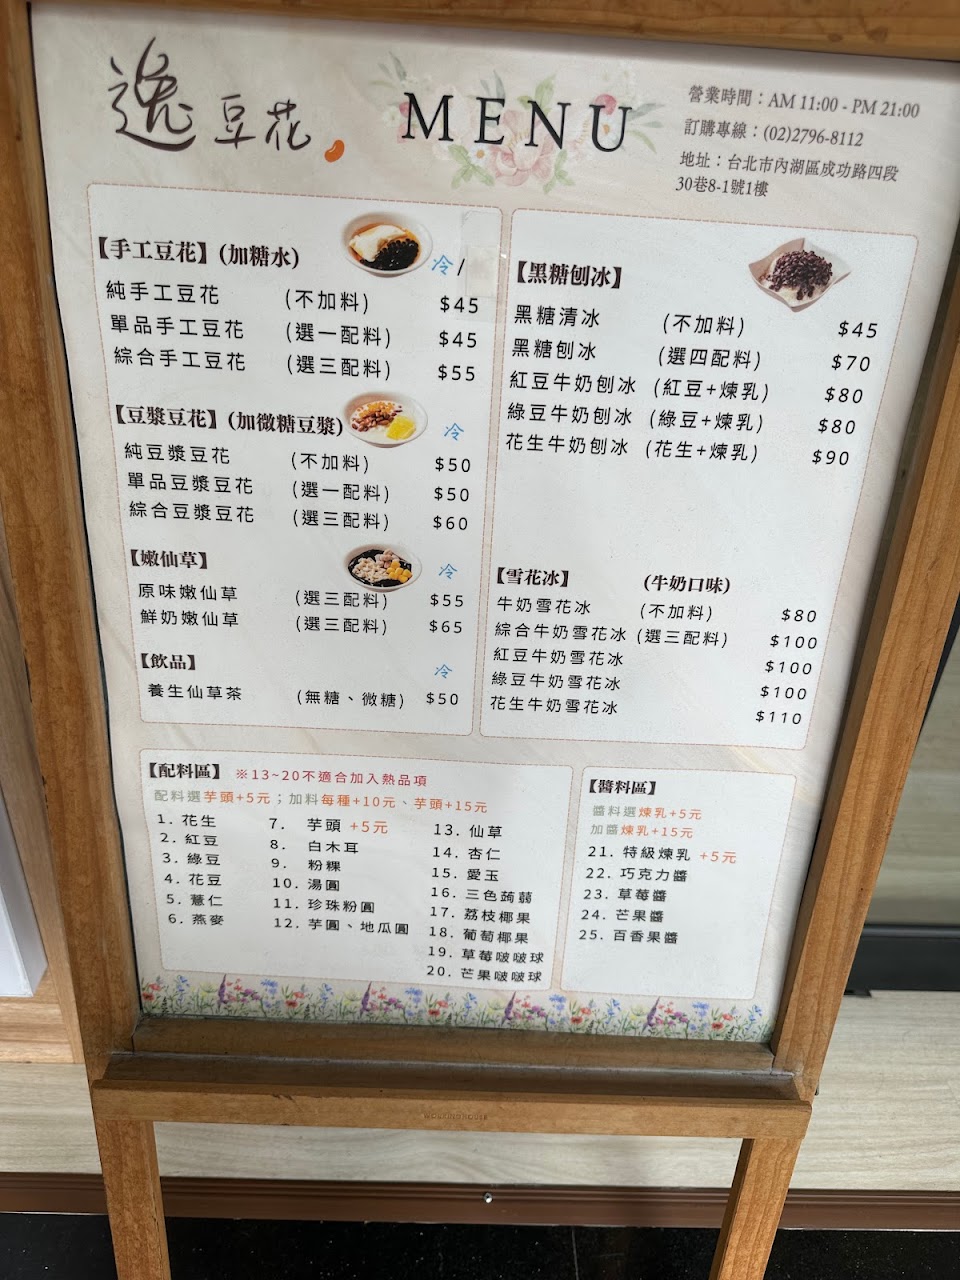 逸豆花
MENU
營業時間：AM 11:00 - PM 21:00
訂購專線：(02)2796-8112
地址：台北市內湖區成功路四段
30巷8-1號1樓
【手工豆花】(加糖水) 冷/
純手工豆花 (不加料) $45
單品手工豆花 (選一配料) $45
綜合手工豆花 (選三配料) $55
【豆漿豆花】(加微糖豆漿) 冷
純豆漿豆花 (不加料) $50
單品豆漿豆花 (選一配料) $50
綜合豆漿豆花 (選三配料) $60
【嫩仙草】 冷
原味嫩仙草 (選三配料) $55
鮮奶嫩仙草 (選三配料) $65
【飲品】 冷
養生仙草茶 (無糖、微糖) $50
【黑糖刨冰】
黑糖清冰 (不加料) $45
黑糖刨冰 (選四配料) $70
紅豆牛奶刨冰 (紅豆+煉乳) $80
綠豆牛奶刨冰 (綠豆+煉乳) $80
花生牛奶刨冰 (花生+煉乳) $90
【雪花冰】 (牛奶口味)
牛奶雪花冰 (不加料) $80
綜合牛奶雪花冰 (選三配料) $100
紅豆牛奶雪花冰 $100
綠豆牛奶雪花冰 $100
花生牛奶雪花冰 $110
【配料區】 ※13~20不適合加入熱品項
配料選芋頭+5元；加料每種+10元、芋頭+15元
1. 花生
2. 紅豆
3. 綠豆
4. 花豆
5. 薏仁
6. 燕麥
7. 芋頭 +5元
8. 白木耳
9. 粉粿
10. 湯圓
11. 珍珠粉圓
12. 芋圓、地瓜圓
13. 仙草
14. 杏仁
15. 愛玉
16. 三色蒟蒻
17. 荔枝椰果
18. 葡萄椰果
19. 草莓啵啵球
20. 芒果啵啵球
【醬料區】
醬料選煉乳+5元
加醬煉乳+15元
21. 特級煉乳 +5元
22. 巧克力醬
23. 草莓醬
24. 芒果醬
25. 百香果醬